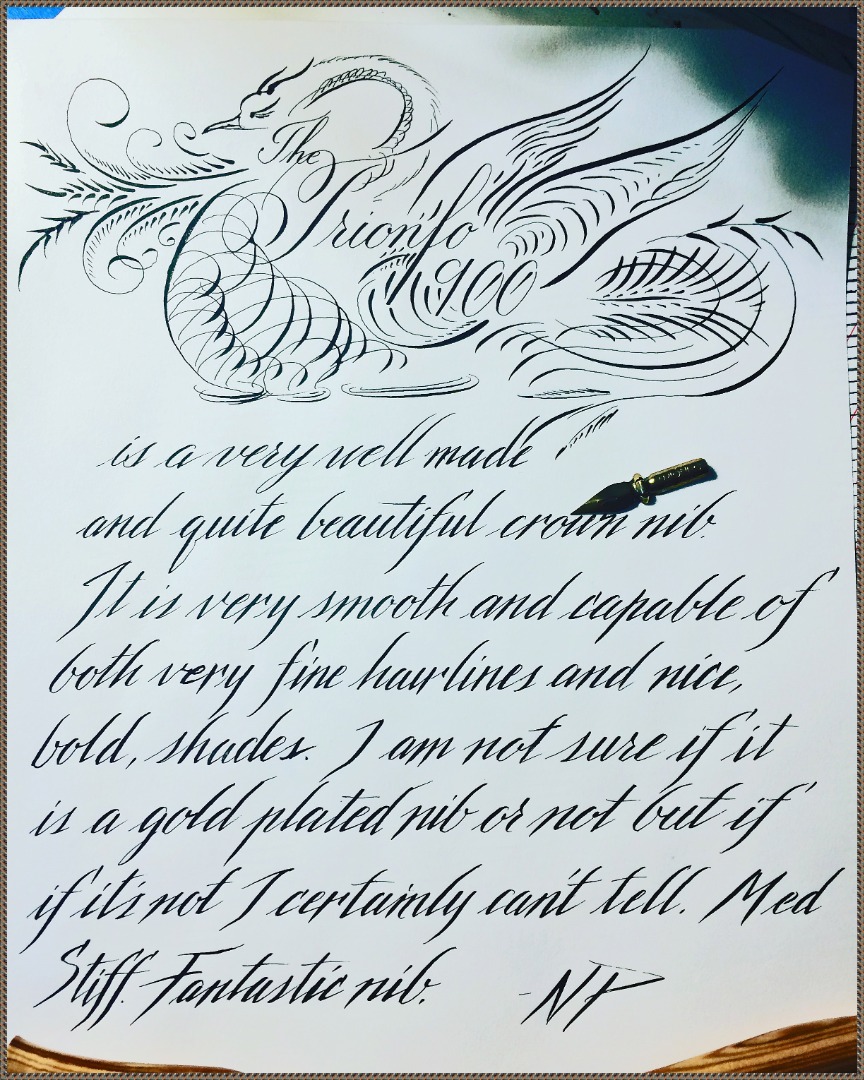 The
Trionfo
900
is a very well made
and quite beautiful crown nib.
It is very smooth and capable of
both very fine hairlines and nice,
bold, shades. I am not sure if it
is a gold plated nib or not but if
if it's not I certainly can't tell. Med
Stiff. Fantastic nib. -NP